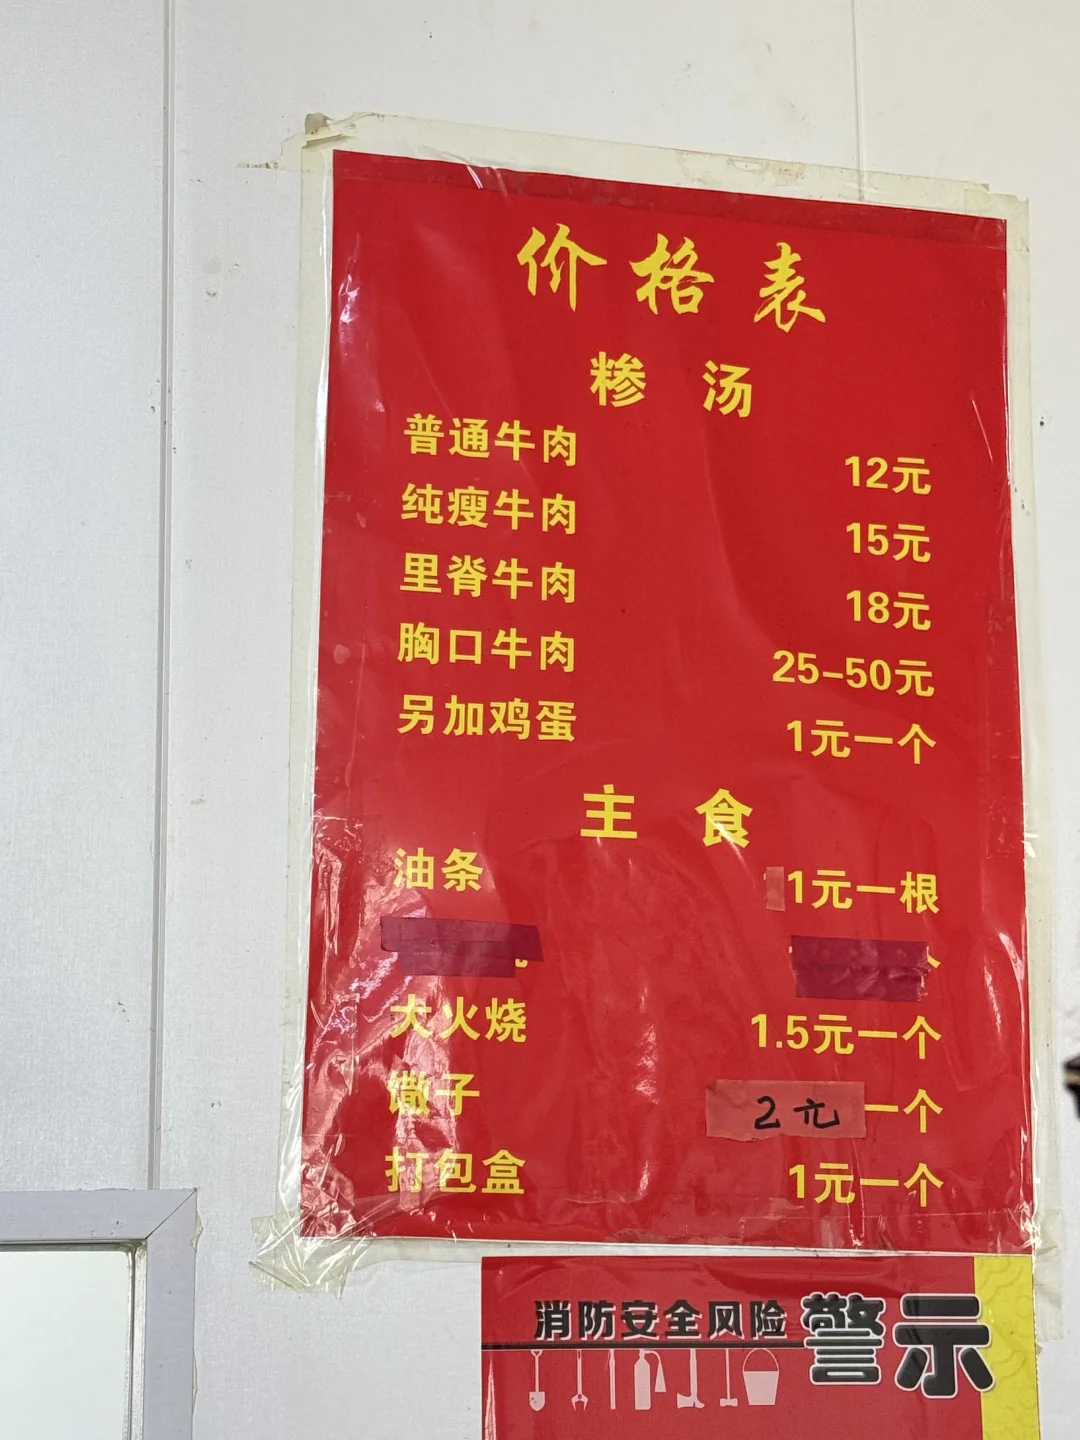 价格表
糁汤
普通牛肉 12元
纯瘦牛肉 15元
里脊牛肉 18元
胸口牛肉 25-50元
另加鸡蛋 1元一个
主食
油条 1元一根
大火烧 1.5元一个
馓子 2元一个
打包盒 1元一个
消防安全风险警示